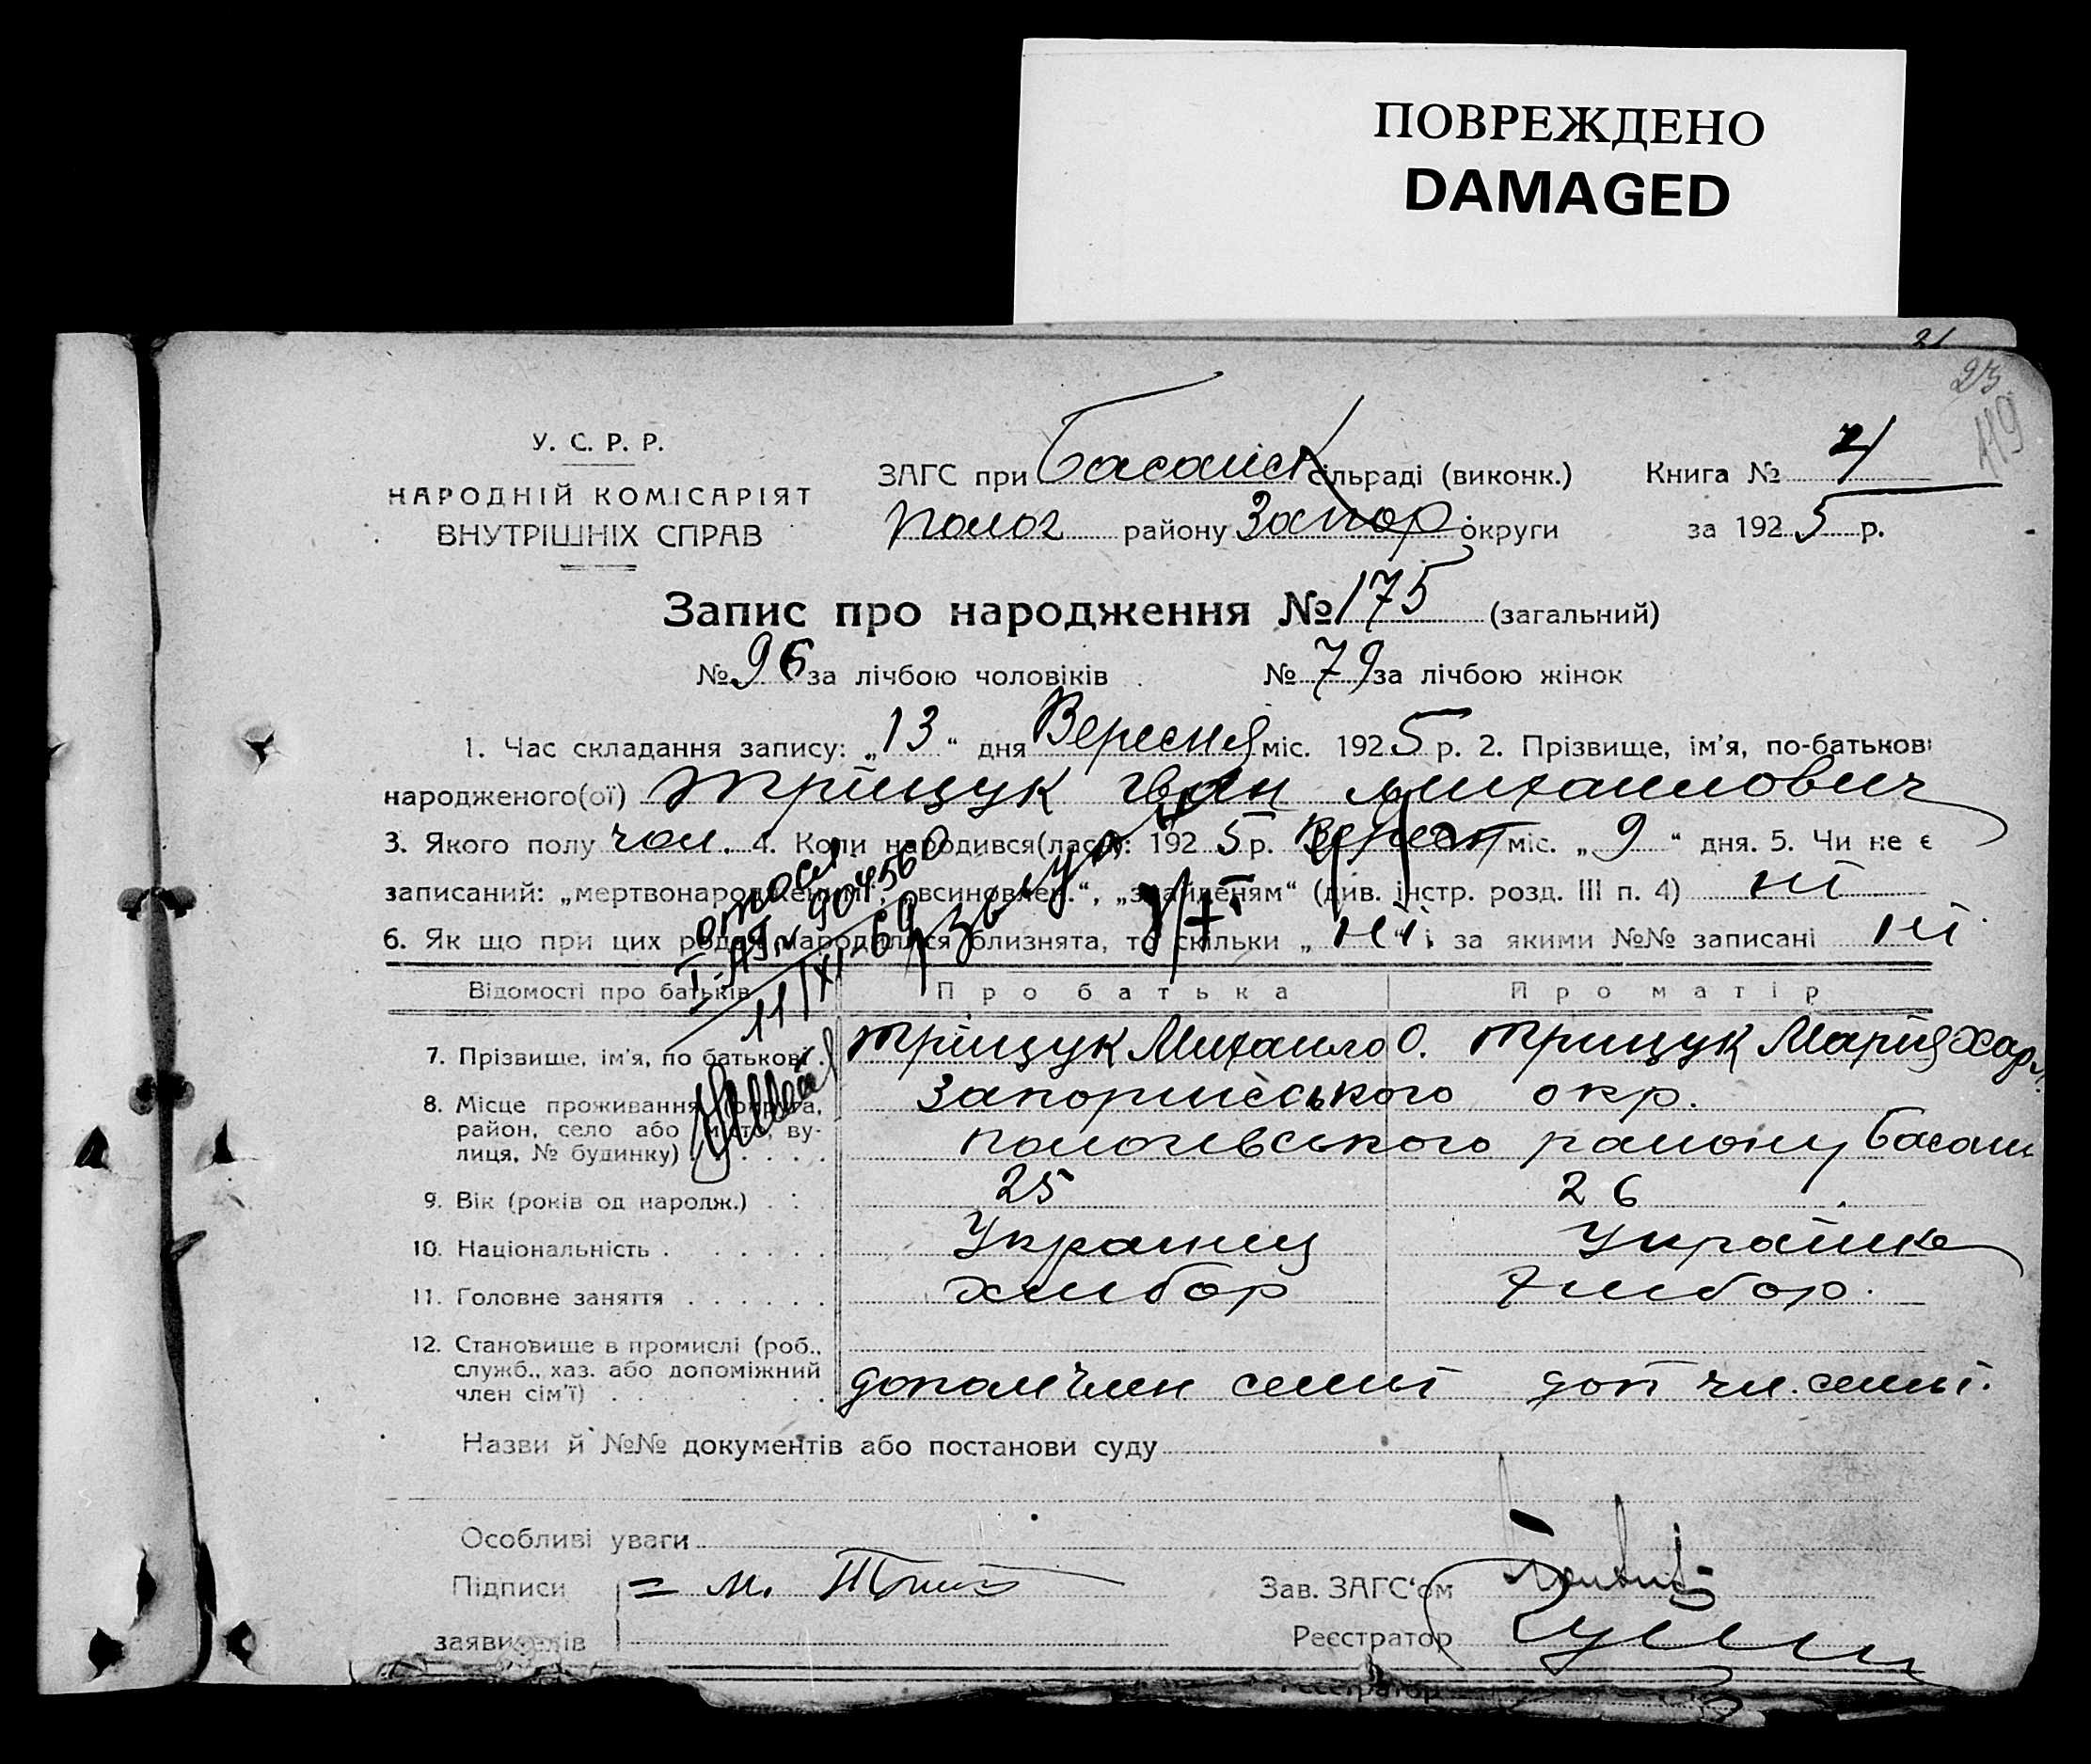 ПОВРЕЖДЕНО
DAMAGED
23
119
У. С. Р. Р.
НАРОДНІЙ КОМІСАРІЯТ
ВНУТРІШНІХ СПРАВ
ЗАГС при Басанськ сільраді (виконк.) Книга №
Полог району Запор округи за 1925 р.
Запис про народження № 175 (загальний)
№ 96 за лічбою чоловіків № 79 за лічбою жінок
1. Час складання запису: „13“ дня Вересня міс. 1925 р. 2. Прізвище, ім'я, по-батькові
народженого(ої) Тріщук Іван Михайлович
3. Якого полу чол. 4. Коли народився(лася): 1925 р. Верес міс. „9“ дня. 5. Чи не є
записаний: „мертвонародженим“, „всиновлен.“, „знайденям“ (див. інстр. розд. III п. 4) ні
6. Як що при цих родах народилися близнята, то скільки „ні“ і за якими №№ записані ні
11/XI 69
Відомості про батьків Про батька Про матір
7. Прізвище, ім'я, по батькові . Тріщук Михайло О. Трищук Марія Хар.
8. Місце проживання (округа, район, село або місто, вулиця, № будинку) Запоріжського окр.
пологівського району Басань
9. Вік (років од народж.) . . 25 26
10. Національність . . . . . . Украинец Українка
11. Головне заняття . . . . . . хлібор хлібор.
12. Становище в промислі (роб.,
служб., хаз. або допоміжний
член сім'ї) . . . допом член семьї доп чл. семьї.
Назви й №№ документів або постанови суду
Особливі уваги
Підписи М. Зав. ЗАГС'ом
заявителів Реєстратор
Реєстратор